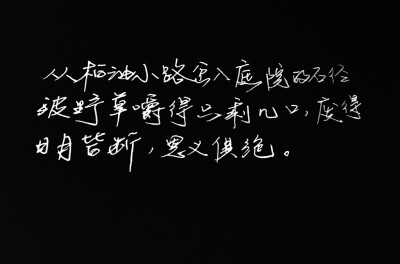 从柏油小路岔入庭院的石径
被野草嚼得只剩几口，废得
日月皆断，恩义俱绝。